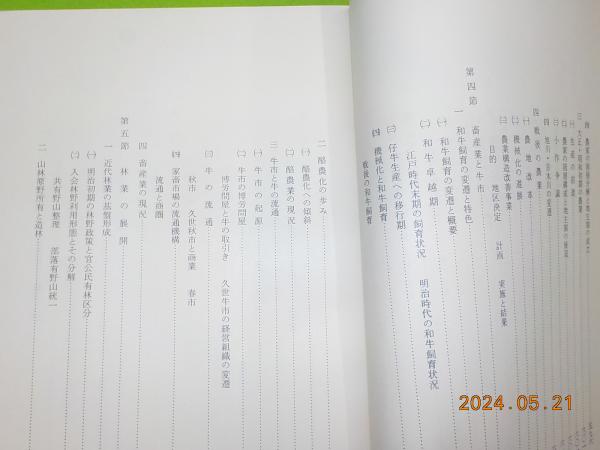 三 大正・昭和初期の農業
㈢ 小作争議
四 戦後の農業
㈠ 農地改革
㈡ 機械化の進捗
㈢ 農業構造改善事業
目的 地区決定 計画 実施と結果
第四節 畜産業と牛市
一 和牛飼育の変遷と特色
㈠ 和牛飼育の変遷と概要
㈡ 和牛卓越期
江戸時代末期の飼育状況 明治時代の和牛飼育状況
㈢ 仔牛生産への移行期
㈣ 機械化と和牛飼育
戦後の和牛飼育
二 酪農化の歩み
㈠ 酪農化への傾斜
㈡ 酪農業の現況
三 牛市と牛の流通
㈠ 牛市の起源
㈡ 牛市の博労問屋
博労問屋と牛の取引き 久世牛市の経営組織の変遷
㈢ 牛の流通
秋市 久世秋市と商業 春市
㈣ 家畜市場の流通機構
流通と商圏
四 畜産業の現況
第五節 林業の展開
一 近代林業の基盤形成
㈠ 明治初期の林野政策と官公民有林区分
㈡ 入会林野利用形態とその分解
共有野山整理 部落有野山統一
二 山林原野所有と造林
2024.05.21